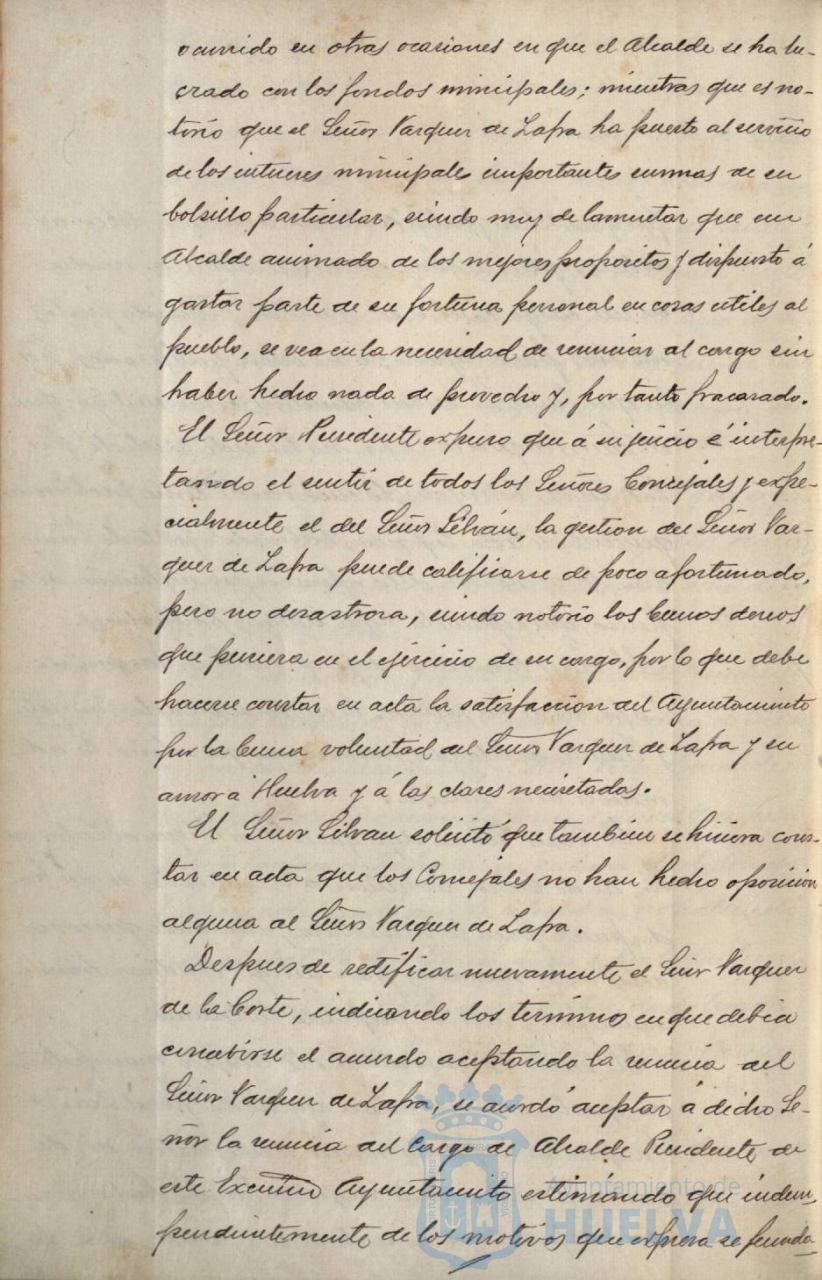 ocurrido en otras ocasiones en que el Alcalde se ha lu-
crado con los fondos municipales; mientras que es no-
torio que el Señor Vazquez de Zafra ha puesto al servicio
de los intereses municipales importantes sumas de su
bolsillo particular, siendo muy de lamentar que un
Alcalde animado de los mejores propositos y dispuesto á
gastar parte de su fortuna personal en cosas utiles al
pueblo, se vea en la necesidad de renunciar al cargo sin
haber hecho nada de provecho y, por tanto fracasado.
El Señor Presidente expuso que á su juicio é interpre-
tando el sentir de todos los Señores Concejales y espe-
cialmente el del Señor Silván, la gestion del Señor Vaz-
quez de Zafra puede calificarse de poco afortunado,
pero no desastrosa, siendo notorio los buenos deseos
que pusiera en el ejercicio de su cargo, por lo que debe
hacerse constar en acta la satisfaccion del Ayuntamiento
por la buena voluntad del Señor Vazquez de Zafra y su
amor á Huelva y á las clases necesitadas.
El Señor Silvan solicitó que tambien se hiciera cons-
tar en acta que los Concejales no han hecho oposicion
alguna al Señor Vazquez de Zafra.
Despues de rectificar nuevamente el Señor Vazquez
de la Corte, indicando los terminos en que debia
concebirse el acuerdo aceptando la renuncia del
Señor Vazquez de Zafra, se acordó aceptar á dicho Se-
ñor la renuncia del cargo de Alcalde Presidente de
este Excmo Ayuntamiento estimando que inden-
pendientemente de los motivos que expresa se funda-
Ayuntamiento de
HUELVA